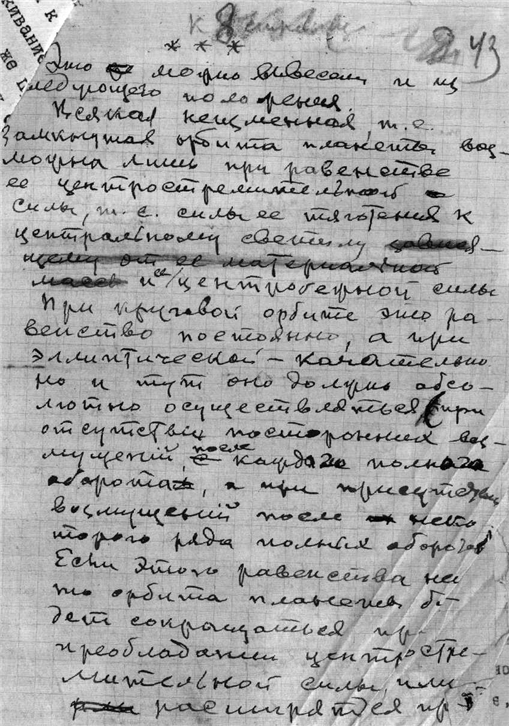 к
кивание
же
8
43
* * *
Это можно вывести и из
следующего положения.
Всякая неизменная, т.е.
замкнутая орбита планеты воз-
можна лишь при равенстве
ее центростремительной
силы, т.е. силы ее тяготения к
центральному светилу завися-
щему от ее материальной
массы и ее центробежной силы
При круговой орбите это ра-
венство постоянно, а при
эллиптической – качательно
но и тут оно должно абсо-
лютно осуществляться (при
отсутствии посторонних воз-
мущений, после каждого полного
оборота, а при присутствии
возмущений после неко
торого ряда полных оборотов
Если этого равенства не
то орбита планеты бу
дет сокращаться пр
преобладании центростре-
мительной силы, или
расширятся пр